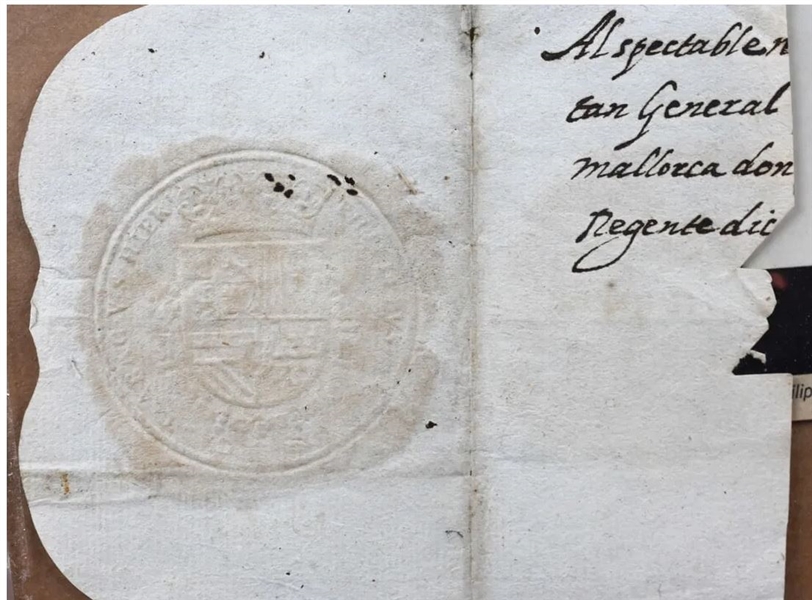 Al spectable n
tan General
mallorca don
Regente dic
ilip